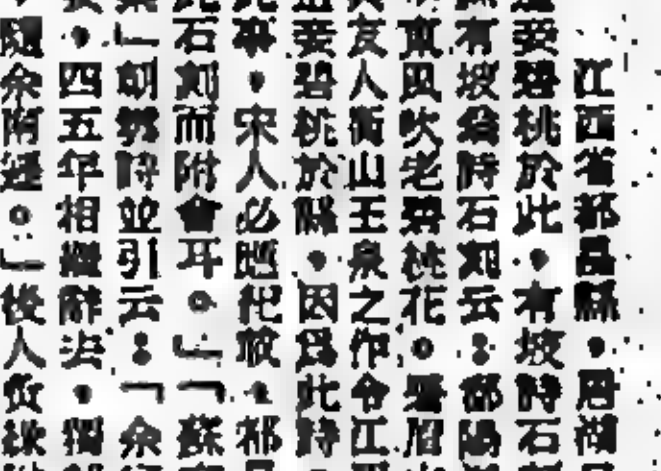 江西省都昌縣，居湖
妾碧桃於此，有坡詩石
有坡翁詩石刻云：鄱陽
風吹老碧桃花。
友人衡山王泉之作令江
妾碧桃於縣，因爲此詩
事，宋人必
石刻而附會耳。」「蘇
」詩並引云：「余
，四五年相繼辭去，獨
隨余。」後人